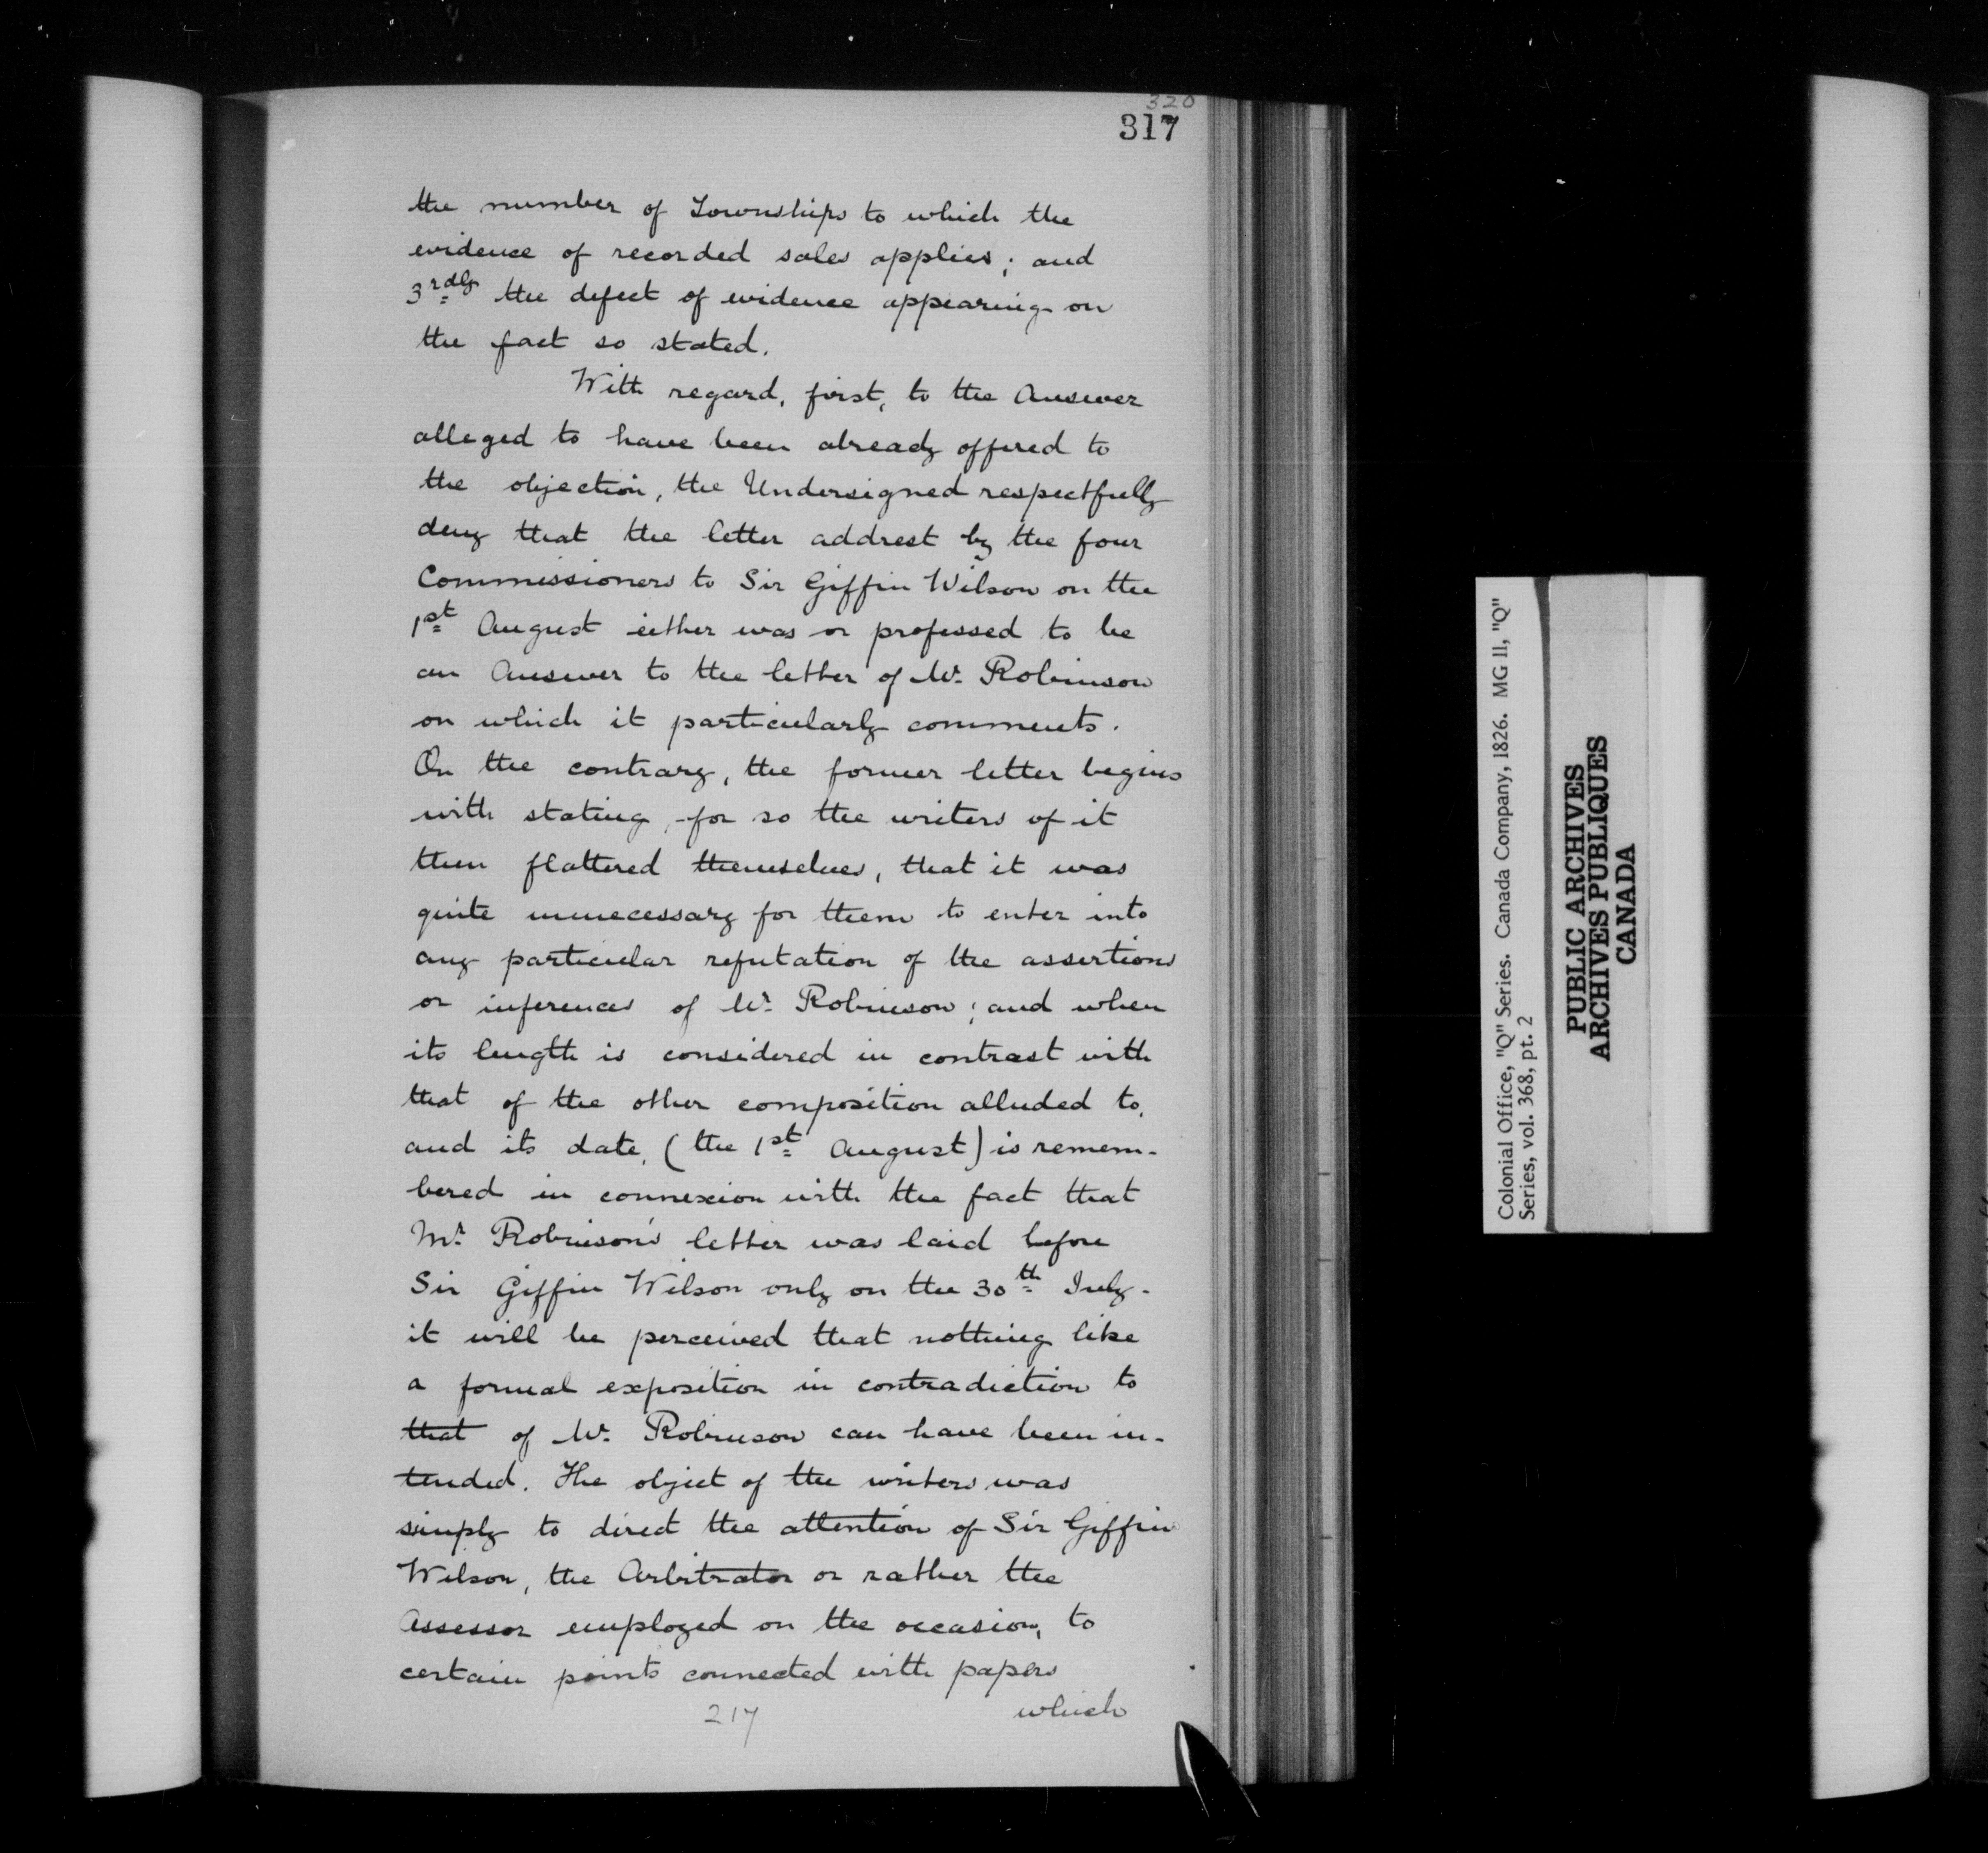 320
317
the number of Townships to which the
evidence of recorded sales applies; and
3rdly the defect of evidence appearing on
the fact so stated.
With regard, first, to the Answer
alleged to have been already offered to
the objection, the Undersigned respectfully
deny that the letter addrest by the four
Commissioners to Sir Giffin Wilson on the
1st August either was or professed to be
an Answer to the letter of Mr. Robinson
on which it particularly comments.
On the contrary, the former letter begins
with stating, for so the writers of it
then flattered themselves, that it was
quite unnecessary for them to enter into
any particular refutation of the assertions
or inferences of Mr. Robinson; and when
its length is considered in contrast with
that of the other composition alluded to,
and its date, (the 1st August) is remem-
bered in connexion with the fact that
Mr. Robinson's letter was laid before
Sir Giffin Wilson only on the 30th July.
it will be perceived that nothing like
a formal exposition in contradiction to
that of Mr. Robinson can have been in-
tended. The object of the writers was
simply to direct the attention of Sir Giffin
Wilson, the Arbitrator or rather the
Assessor employed on the occasion, to
certain points connected with papers
which
217
Colonial Office, "Q" Series. Canada Company, 1826. MG 11, "Q"
Series, vol. 368, pt. 2
PUBLIC ARCHIVES
ARCHIVES PUBLIQUES
CANADA